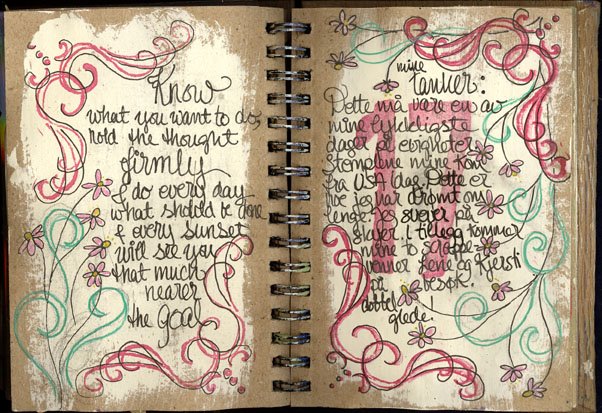 Know
what you want to do,
hold the thought
firmly
& do every day
what should be done
& every sunset
will see you
that much
nearer
the goal
mine
tanker:
Dette må være en av
mine lykkeligste
dager på evigheter.
Stemplene mine kom
fra USA idag. Dette er
noe jeg har drømt om
lenge. Jeg svever på
skyer. I tillegg kommer
mine to scrappe-
venner Lene og Kjersti
på besøk.
dobbel
glede!